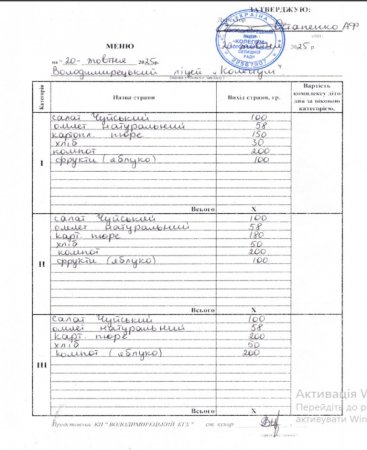 ЗАТВЕРДЖУЮ:
Остапенко АФ
МЕНЮ
на - 20 - жовтня 2025р
Володимирецький ліцей „Колегіум"
Категорія
Назва страви
Вихід страви, гр.
Вартість комплекту діто дня за віковою категорією.
I
салат Чуйський 100
омлет натуральний 58
картопл. пюре 150
хліб 30
компот 200
фрукти (яблуко) 100
Всього X
II
салат Чуйський 100
омлет натуральний 58
карт. пюре 180
хліб 50
компот 200
фрукти (яблуко) 100
Всього X
III
салат Чуйський 100
омлет натуральний 58
карт. пюре 200
хліб 50
компот (яблуко) 200
Всього X
Представник КП "ВОЛОДИМИРЕЦЬКИЙ КГХ" ст. кухар
Активація W
Перейдіть до р
активувати Win